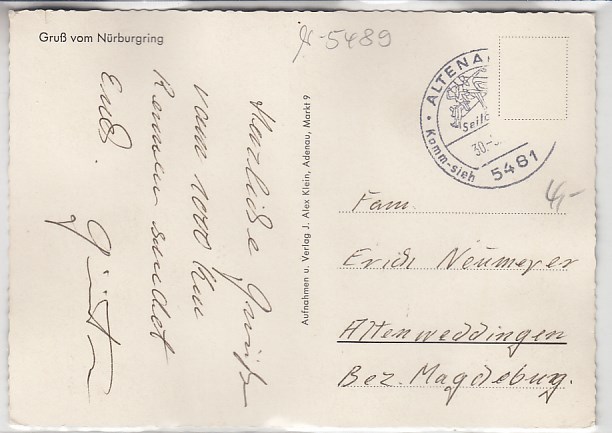 Gruß vom Nürburgring
5489
Herzliche Grüße
vom 1000 km
Rennen sendet
Euch
Günter
Aufnahmen u. Verlag J. Alex Klein, Adenau, Markt 9
ALTENA
Seil
30.
Komm-sieh
5481
4,-
Fam.
Erich Neumeyer
Altenweddingen
Bez. Magdeburg.